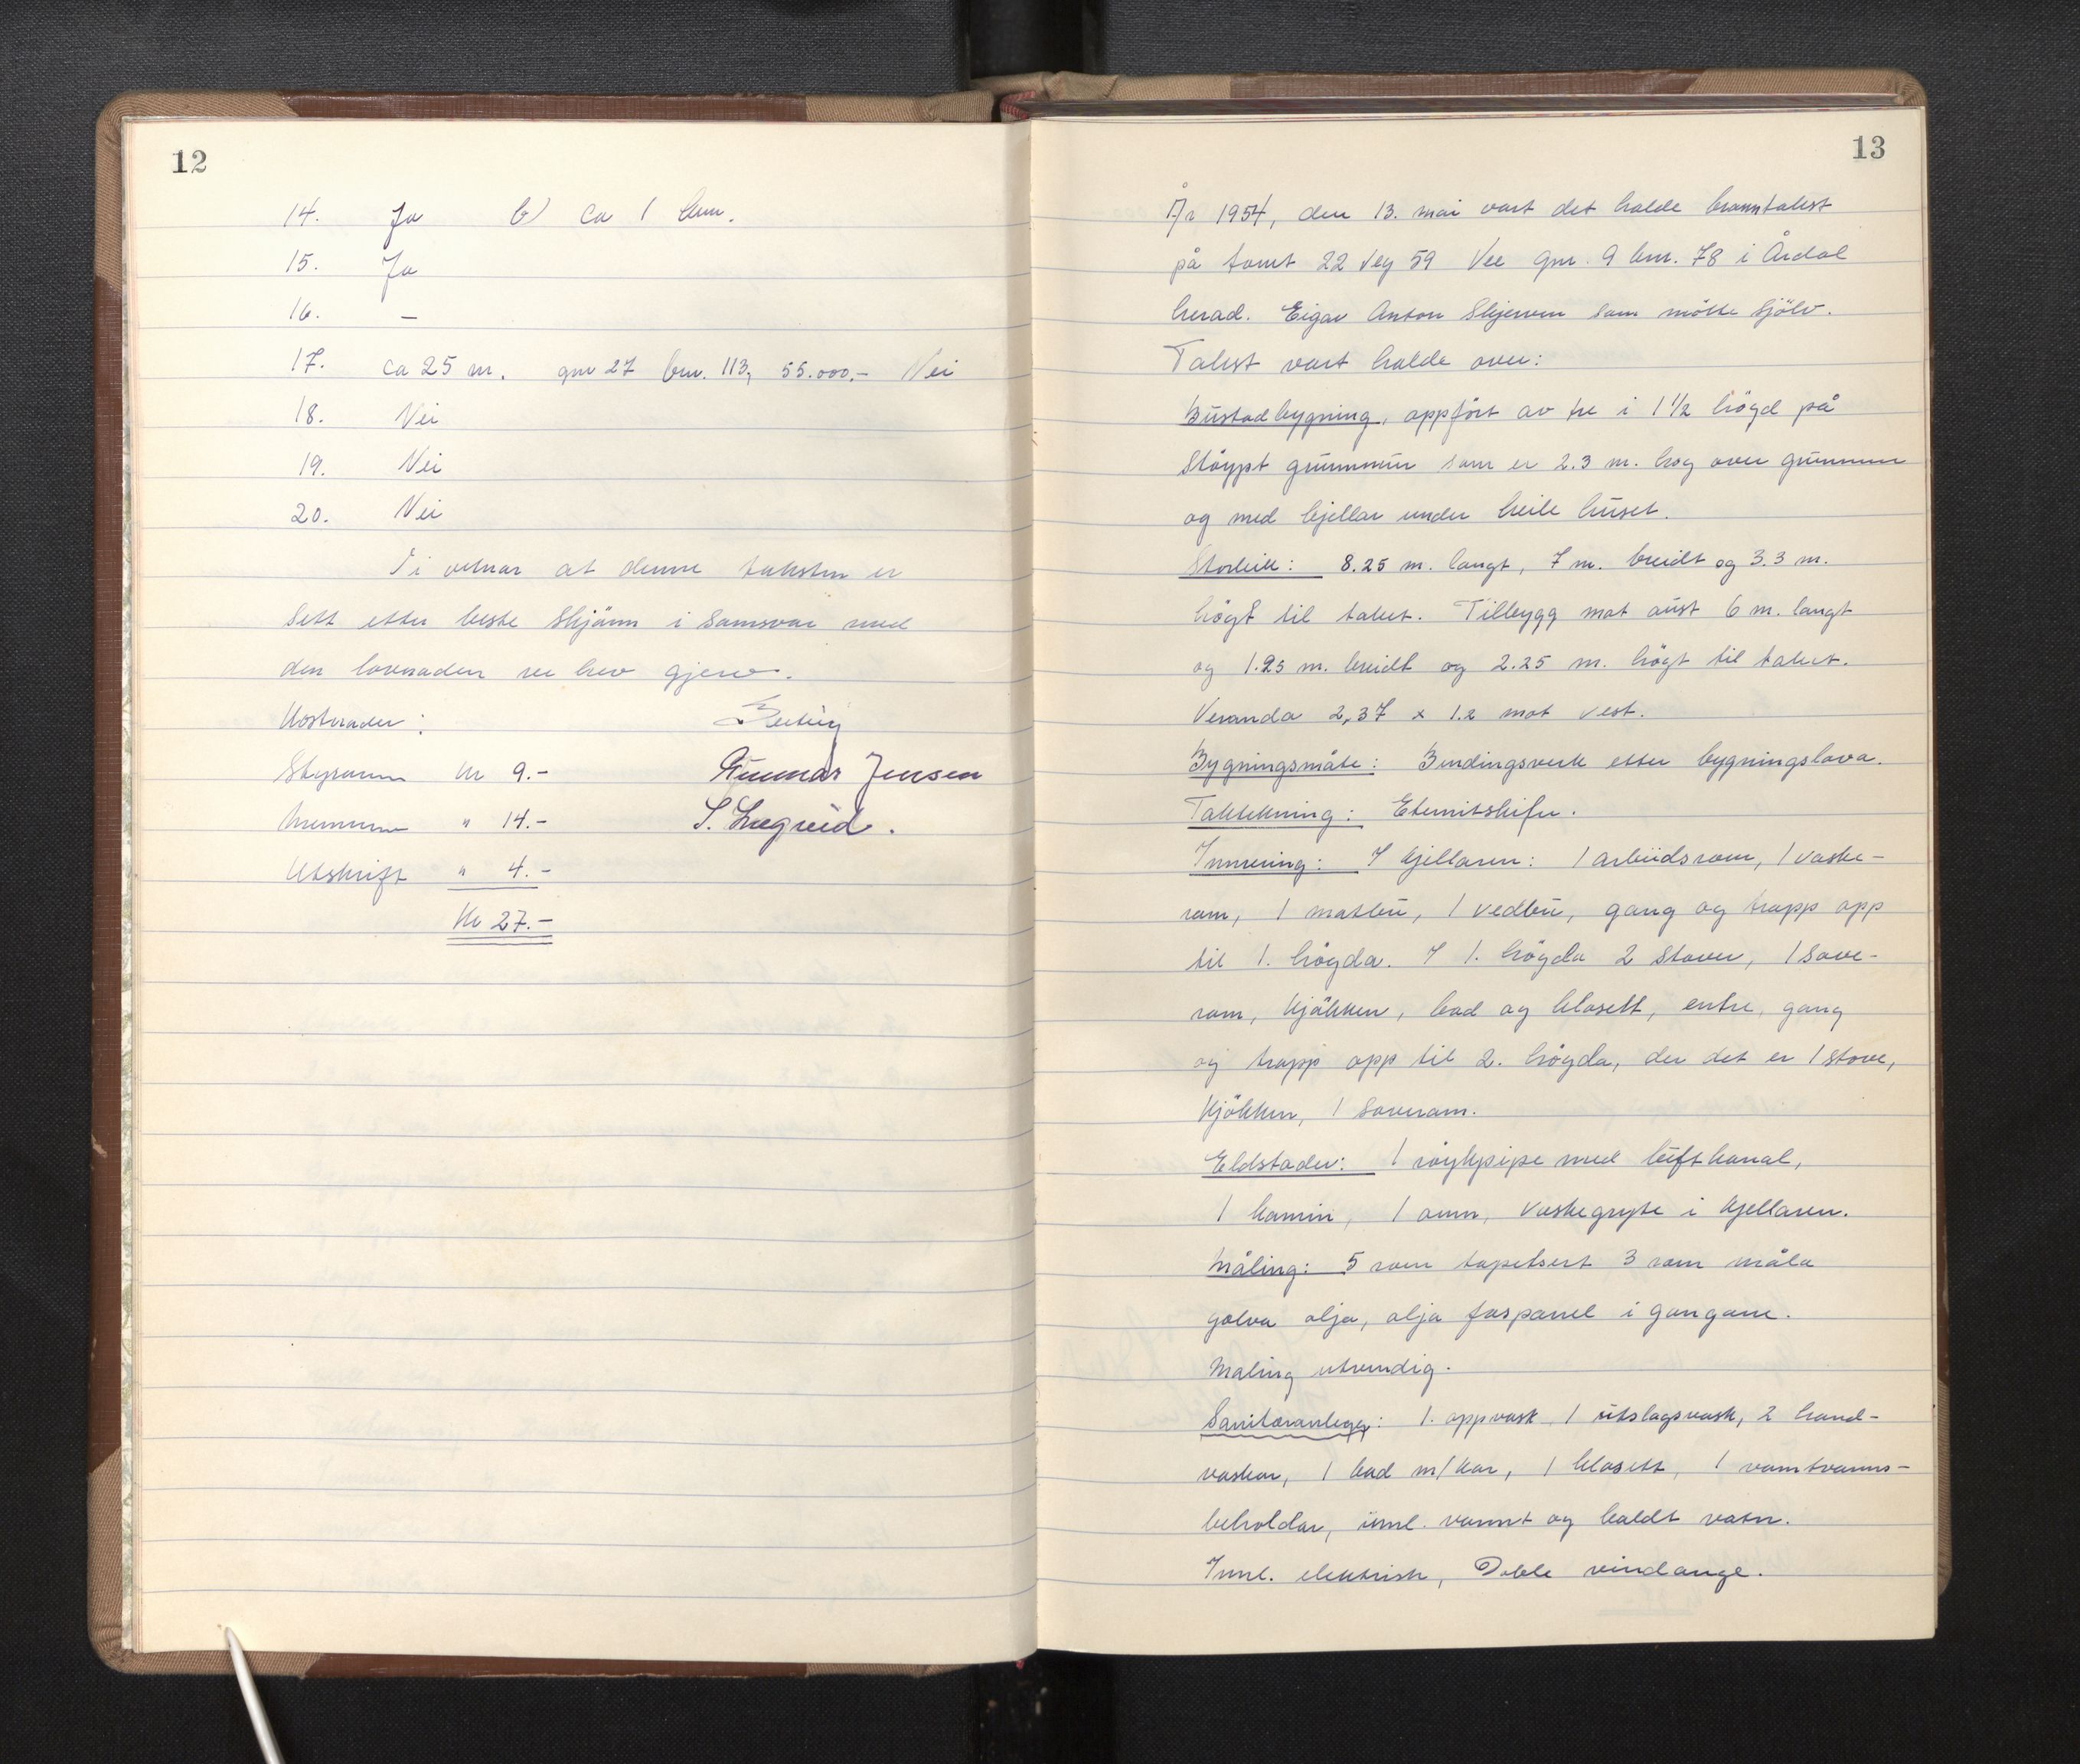 12
14. Ja b) ca 1 km.
15. Ja
16. —
17. ca 25 m. gnr 27 bnr. 113, 55.000,- Nei
18. Nei
19. Nei
20. Nei
Vi vitnar at denne taksten er
sett etter beste skjönn i samsvar med
den lovnaden me hev gjeve.
Kostnader:
Styraren kr 9.-
Mennene " 14.-
Utskrift " 4.-
Kr 27.-
Gunnar Jensen
S. Lægreid.
13
År 1954, den 13. mai vart det halde branntakst
på tomt 22 Veg 59 Vee gnr. 9 bnr. 78 i Årdal
herad. Eigar Anton Skjerven som mötte sjölv.
Takst vart halde over:
Bustadbygning, oppfört av tre i 1 1/2 högd på
Stöypt grunnmur som er 2.3 m. hög over grunnen
og med kjellar under heile huset.
Storleik: 8.25 m. langt, 7 m. breidt og 3.3 m.
högt til taket. Tilbygg mot aust 6 m. langt
og 1.25 m. breidt og 2.25 m. högt til taket.
Veranda 2,37 x 1.2 mot vest.
Bygningsmåte: Bindingsverk etter bygningslova.
Taktekning: Eternitskifer.
Innreiing: I kjellaren: 1 arbeidsrom, 1 vaske-
rom, 1 matbu, 1 vedbu, gang og trapp opp
til 1. högda. I 1. högda 2 stover, 1 sove-
rom, kjökken, bad og klosett, entre, gang
og trapp opp til 2. högda, der det er 1 stove,
kjökken, 1 soverom.
Eldstader: 1 röykpipe med luftkanal,
1 kamin, 1 omn, vaskegryte i kjellaren.
Måling: 5 rom tapetsert 3 rom måla
golva olja, olja faspanel i gangane.
Maling utvendig.
Sanitæranlegg: 1. oppvask 1 utslagsvask, 2 hand-
vaskar, 1 bad m/kar, 1 klosett, 1 varmtvanns-
beholdar, innl. varmt og kaldt vatn.
Innl. elektrisk, Doble vindauge.